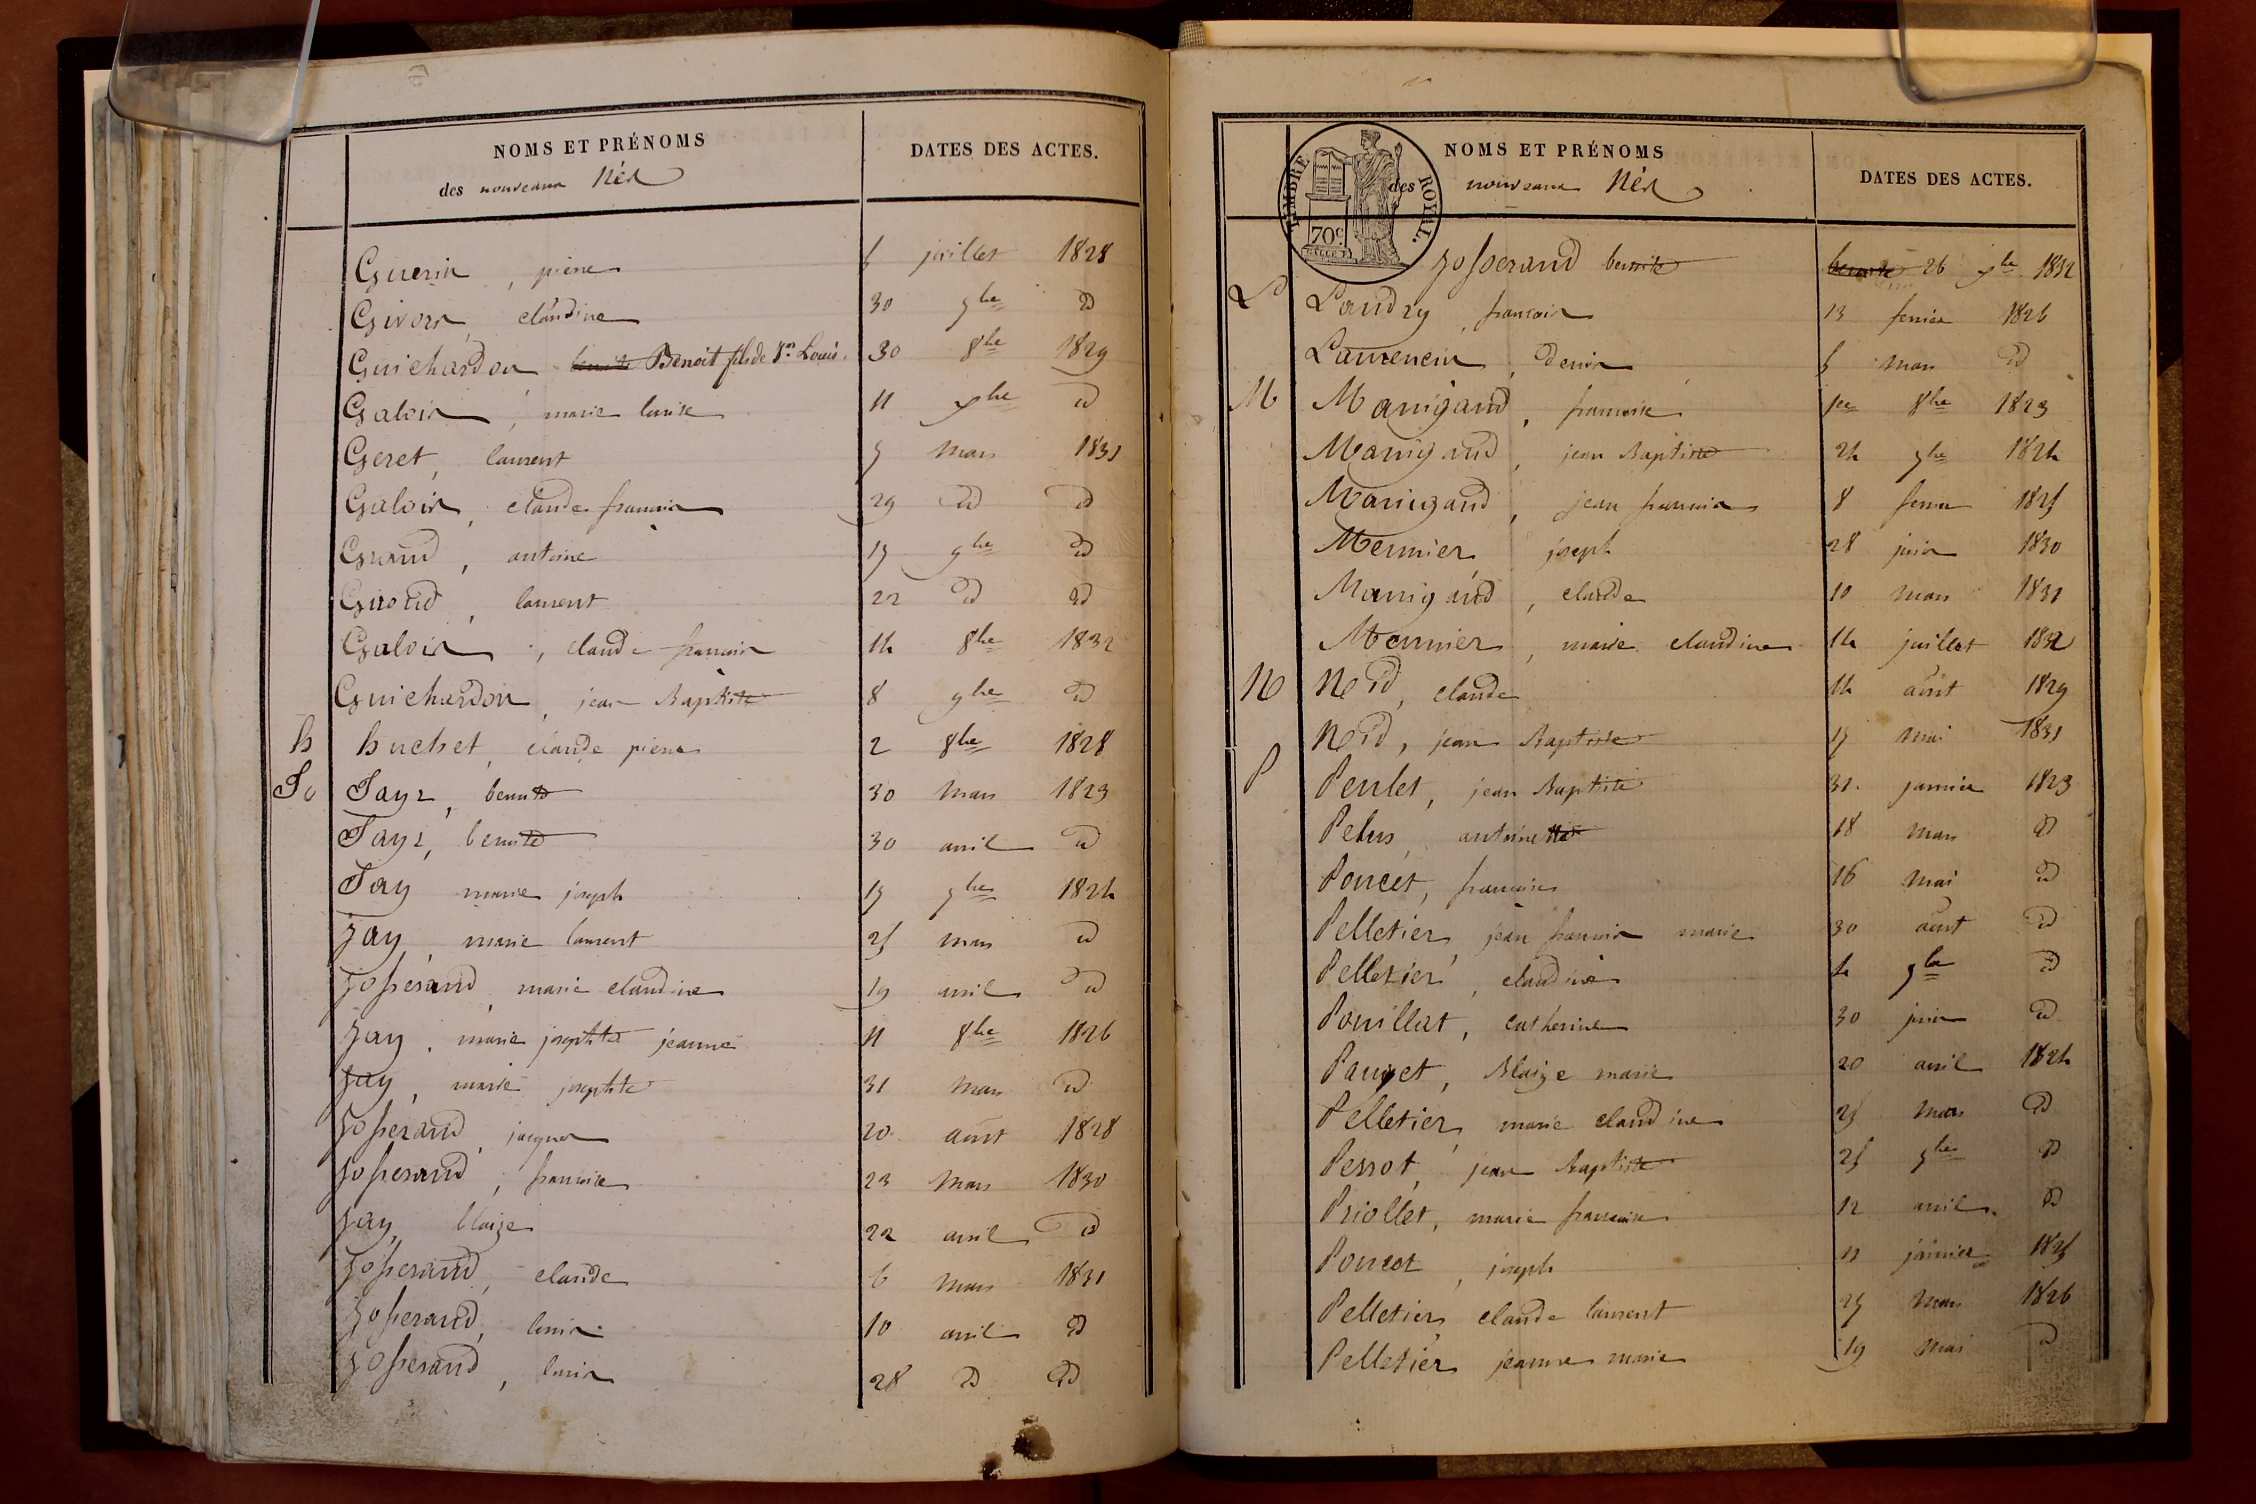 NOMS ET PRÉNOMS
des nouveaux Nés
DATES DES ACTES.
Guerin, pierre 5 juillet 1828
Givors, claudine 30 9bre id
Guichardon benoite Benoit fils de Sr. Louis. 30 8bre 1829
Galois, marie louise 11 xbre id
Geret, laurent 9 mars 1831
Galois, claude francois 29 id id
Guand, antoine 19 9bre id
Guoud, laurent 22 id id
Galois, claude francois 14 8bre 1832
Guichardon, jean Baptiste 8 9bre id
h huchet, claude pierre 2 8bre 1828
J Jayr, benoite 30 mars 1823
Jayr, benoite 30 avril id
Jay marie joseph 19 9bre 1824
Jay, marie laurent 25 mars id
Josserand, marie claudine 19 avril id
Jay, marie josephte jeanne 11 8bre 1826
Jay, marie josephte 31 mars id
Josserand, jacques 20 aout 1828
Josserand, francoise 23 mars 1830
Jay, blaize 22 avril id
Josserand, claude 6 mars 1831
Josserand, louis 10 avril id
Josserand, louis 28 id id
NOMS ET PRÉNOMS
des nouveaux Nés
DATES DES ACTES.
TIMBRE ROYAL.
70c.
Josserand benoite benoite 26 xbre 1832
L Landry, francois 13 fevrier 1826
Laurencin, denis 5 mars id
M Manigand, francoise 1er 8bre 1823
Manigand, jean Baptiste 24 9bre 1824
Manigand, jean francois 8 fevrier 1825
Meunier, joseph 28 juin 1830
Manigand, claude 10 mars 1831
Meunier, marie claudine 14 juillet 1832
N Noid, claude 14 aout 1829
Noid, jean Baptiste 19 mai 1831
P Penlet, jean Baptiste 31 janvier 1823
Pelus, antoinette 18 mars id
Poncet, francoise 16 mai id
Pelletier, jean francois marie 30 aout id
Pelletier, claudine 4 9bre id
Pouillat, catherine 30 juin id
Pauget, Blaize marie 20 avril 1824
Pelletier, marie claudine 25 mars id
Perrot, jean Baptiste 25 9bre id
Priollet, marie francoise 12 avril id
Poncet, joseph 12 janvier 1825
Pelletier, claude laurent 29 mars 1826
Pelletier jeanne marie 19 mai id